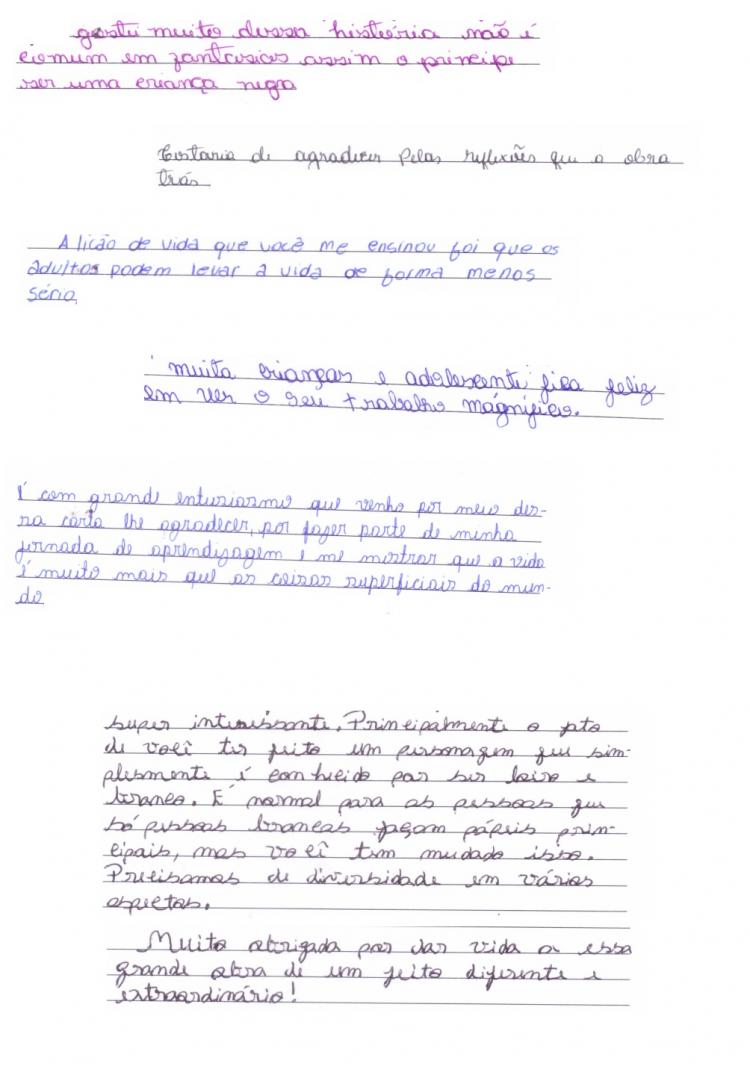 gostei muito dessa história não é
comum em fantasias assim o principe
ser uma criança negra
Gostaria de agradecer Pelas reflexões que a obra
trás
A lição de vida que você me ensinou foi que os
adultos podem levar a vida de forma menos
séria
muita crianças e adolescente fica feliz
em ver o seu trabalho mágnifico.
É com grande entusiasmo que venho por meio des-
sa carta lhe agradecer, por fazer parte de minha
jornada de aprendizagem e me mostrar que a vida
é muito mais que as coisas superficiais do mun-
do
super interessante. Principalmente o fato
de você ter feito um personagem que sim-
plesmente é conhecido por ser loiro e
branco. É normal para as pessoas que
só pessoas brancas façam pápeis prin-
cipais, mas você tem mudado isso.
Precisamos de diversidade em vários
aspectos.
Muito obrigada por dar vida a essa
grande obra de um jeito diferente e
extraordinário!